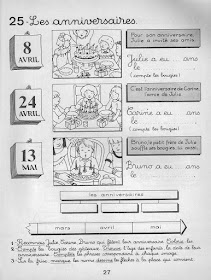 25 - Les anniversaires.
8
AVRIL
Pour son anniversaire,
Julie a invité ses amis.
Julie a eu ... ans
le
(compte les bougies)
24
AVRIL
C'est l'anniversaire de Carine,
l'amie de Julie.
Carine a eu ... ans
le
(compte les bougies)
13
MAI
Bruno, le petit frère de Julie
souffle les bougies, ce soir.
Bruno a eu ... ans
le
(compte les bougies)
les anniversaires
mars avril mai
1 - Reconnais Julie, Carine, Bruno qui fêtent leur anniversaire. Colorie-les.
2 - Compte les bougies des gâteaux. Donne l'âge des enfants le soir de leur
anniversaire. Complète les phrases correspondant à chaque image.
3 - Sur la frise, marque les noms
27